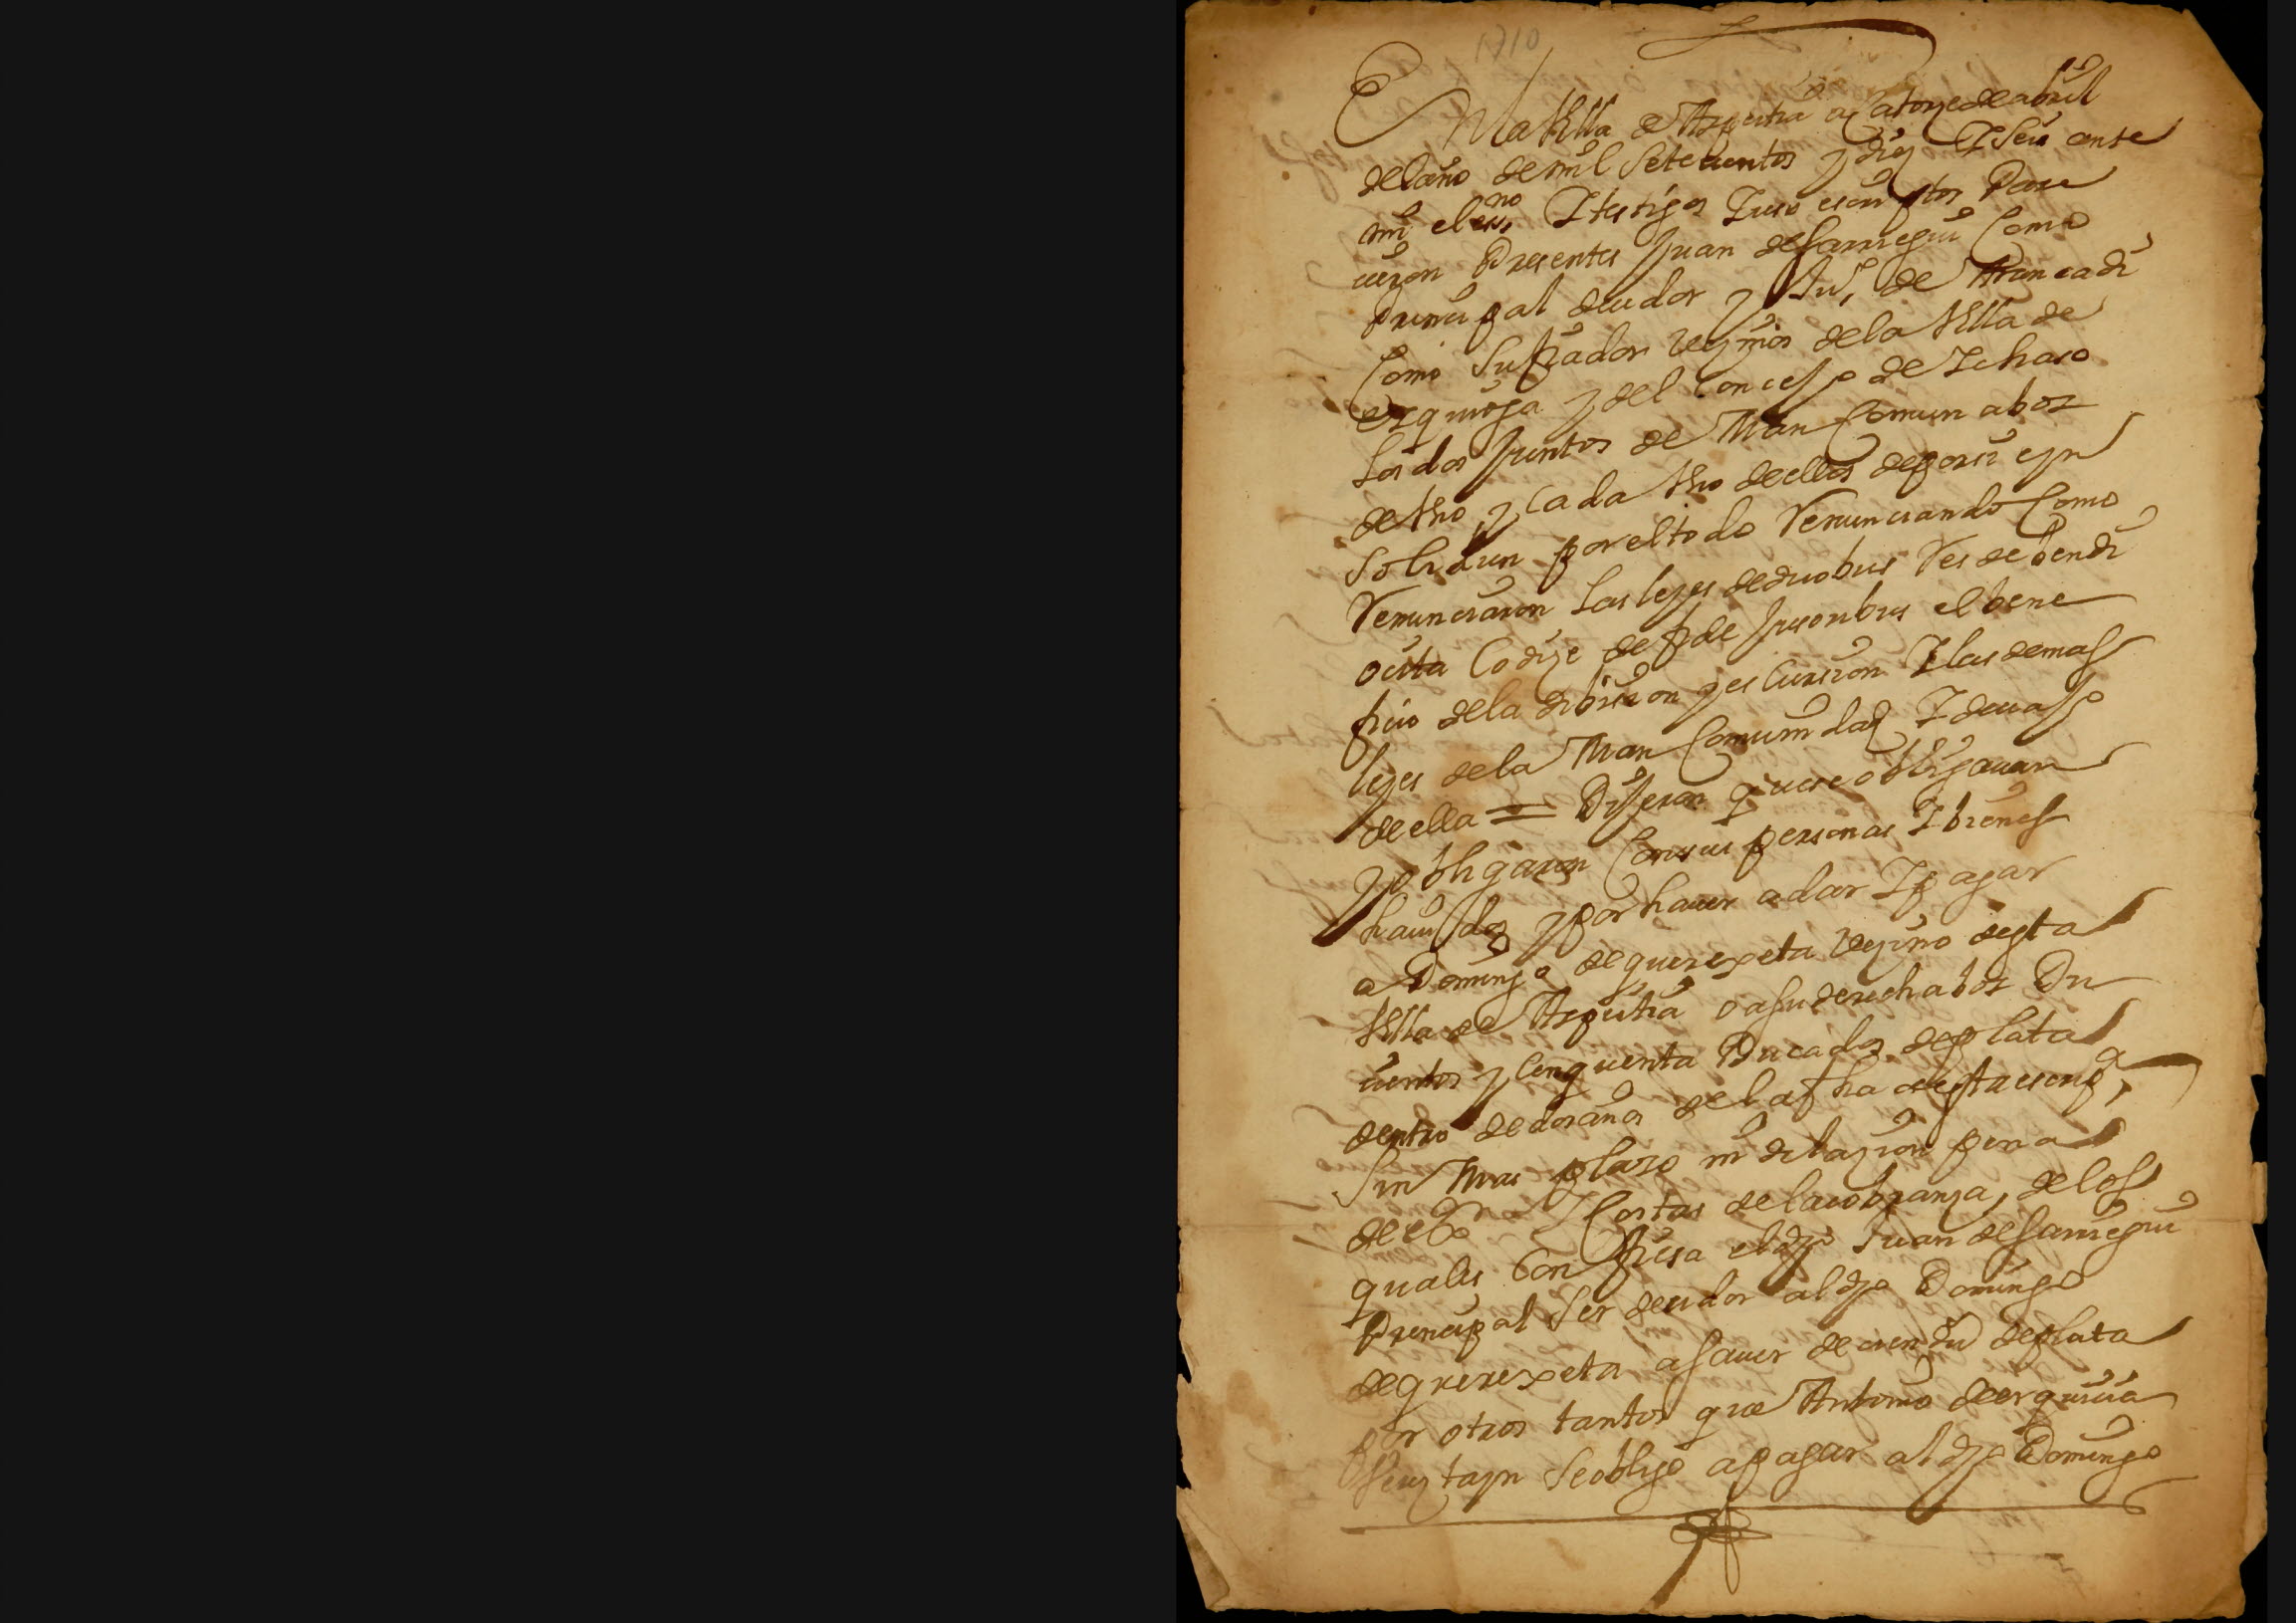 1710
En la Villa de Azpeitia a Catorze de abril
del año de mil Setecientos y diez I Seis ante
mi el essno I testigos Iuso escriptos Pare
cieron Presentes Juan de Sarriegui Como
Principal deudor y Ju, de Arancadi
Como Su fiador vezinos de la Villa de
ezquioga y del Concejo de Ichaso
Los dos Juntos de Man Comun a boz
de Vno y Cada Vno de ellos de por si e yn
Solidun por el todo Renunciando Como
Renunciaron Las leyes de duobus Res de bendi
ocita Codize de fide Jusoribus el bene
ficio de la dibision y escursion I las demas
leyes de la Man Comunidad I de caso
de ella = Dijeron que se obligauan
y obligaron Con sus personas I bienes
hauidos y por hauer a dar I pagar
a Domingo de querexeta vezino desta
Villa de Azpeitia o a su derecha boz Du
cientos y Cinquenta Ducados de plata
dentro de dos años de la fha de esta escripa,
Sin Mas plazo ni dilazion pena
de exon I Costas de la cobranza, de los
quales Confiesa el dho Juan de Sarriegui
Principal Ser deudor al dho Domingo
de querexeta a Sauer de cien du de plata
por otros tantos que Antonio de
Se obligo a pagar al dho Domingo